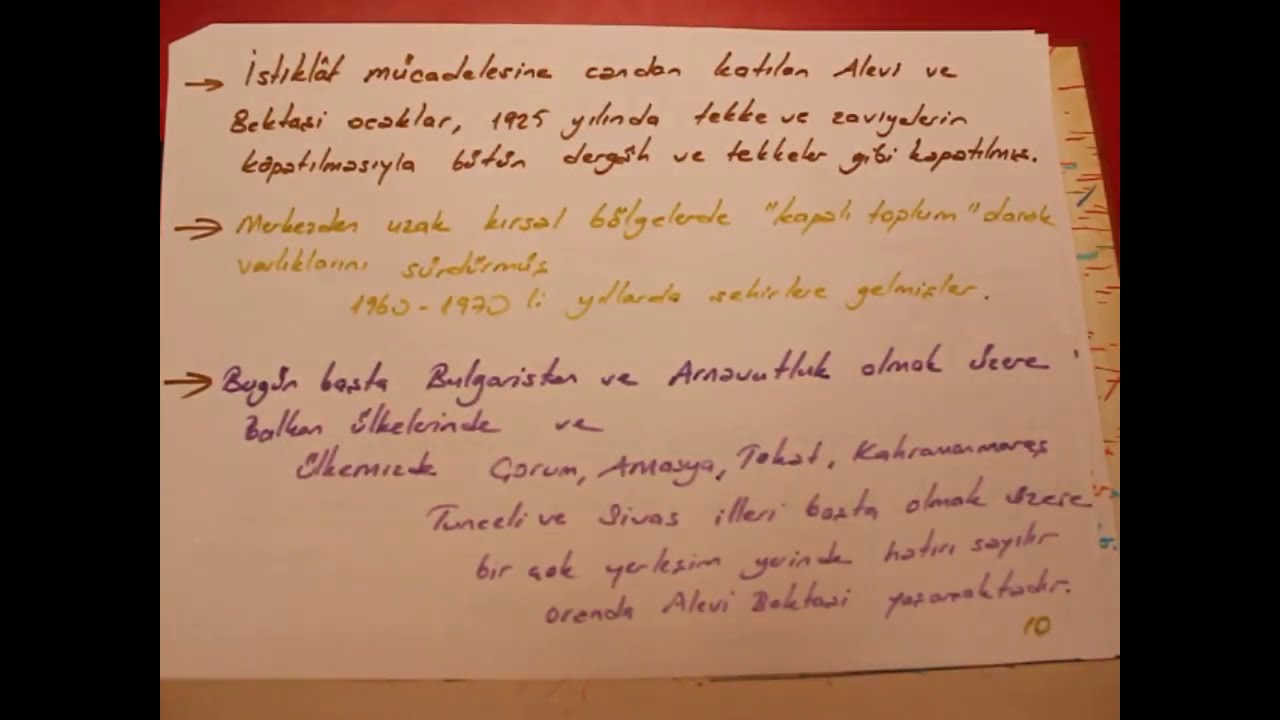 → İstiklâl mücadelesine candan katılan Alevi ve
Bektaşi ocaklar, 1925 yılında tekke ve zaviyelerin
kapatılmasıyla bütün dergâh ve tekkeler gibi kapatılmış.
→ Merkezden uzak kırsal bölgelerde "kapalı toplum" olarak
varlıklarını sürdürmüş
1960-1970 li yıllarda şehirlere gelmişler.
→ Bugün başta Bulgaristan ve Arnavutluk olmak üzere
Balkan ülkelerinde ve
ülkemizde Çorum, Amasya, Tokat, Kahramanmaraş
Tunceli ve Sivas illeri başta olmak üzere
bir çok yerleşim yerinde hatırı sayılır
oranda Alevi Bektaşi yaşamaktadır.
10